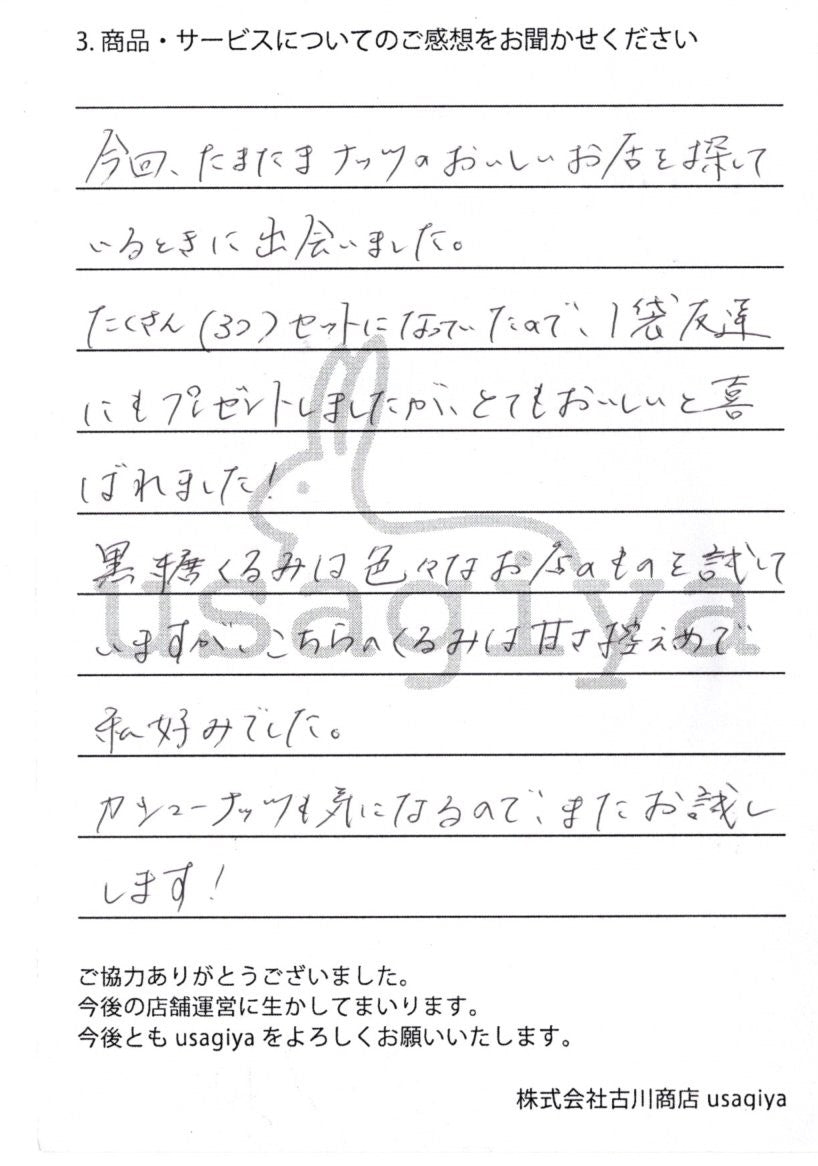 3. 商品・サービスについてのご感想をお聞かせください
今回、たまたまナッツのおいしいお店を探して
いるときに出会いました。
たくさん(3つ)セットになっていたので、1袋友達
にもプレゼントしましたが、とてもおいしいと喜
ばれました!
黒糖くるみは色々なお店のものを試して
いますが、こちらのくるみは甘さ控えめで
私好みでした。
カシューナッツも気になるので、またお試し
します!
usagiya
ご協力ありがとうございました。
今後の店舗運営に生かしてまいります。
今後とも usagiya をよろしくお願いいたします。
株式会社古川商店 usagiya